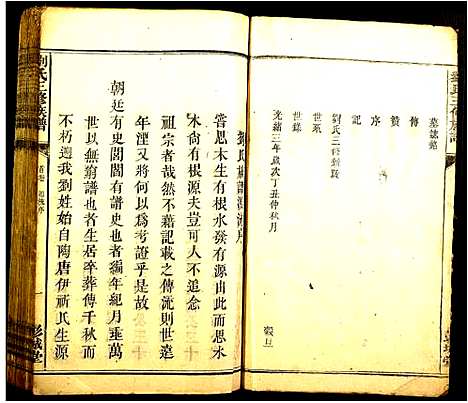 墓誌銘
傳
贊
序
記
劉氏三修新跋
世系
世錄
光緒三年歲次丁丑仲秋月 穀旦
劉氏族譜源流序
嘗思木生有根水發有源由此而思水
木尚有根源夫豈可人不追念
祖宗者哉然不藉記載之傳流則世遠
年湮又將何以爲考證乎是故
朝廷有史閭閻有譜史也者編年紀月垂萬
世以無窮譜也者生居卒葬傳千秋而
不朽遡我劉姓始自陶唐伊祈氏生源
劉氏三修族譜
首卷
源流序
一
彭城堂